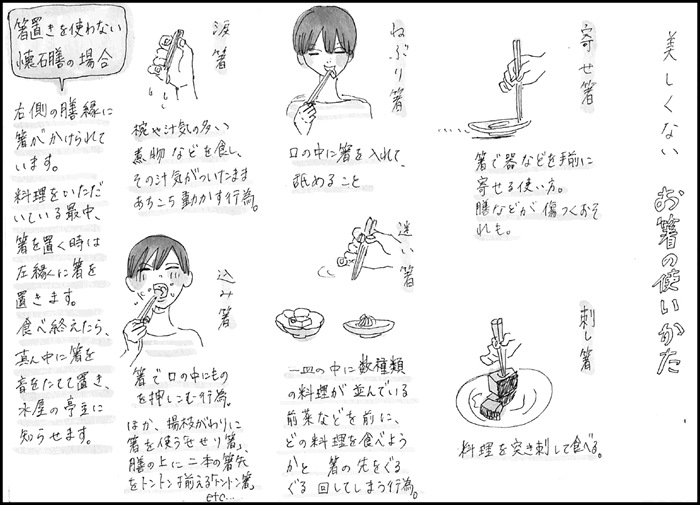 美しくない お箸の使いかた
寄せ箸
箸で器などを手前に
寄せる使い方。
膳などが傷つくおそ
れも。
刺し箸
料理を突き刺して食べる。
ねぶり箸
口の中に箸を入れて、
舐めること
迷い箸
一皿の中に数種類
の料理が並んでいる
前菜などを前に、
どの料理を食べよう
かと 箸の先をぐる
ぐる回してしまう行為。
涙箸
椀や汁気の多い
煮物などを食し、
その汁気がついたまま
あちこち動かす行為。
込み箸
箸で口の中にもの
を押しこむ行為。
ほか、揚枝がわりに
箸を使う「せせり箸」、
膳の上に二本の箸先
をトントン揃える「トントン箸」
etc…
箸置きを使わない
懐石膳の場合
右側の膳縁に
箸がかけられて
います。
料理をいただ
いている最中、
箸を置く時は
左縁に箸を
置きます。
食べ終えたら、
真ん中に箸を
音をたてて置き、
水屋の亭主に
知らせます。